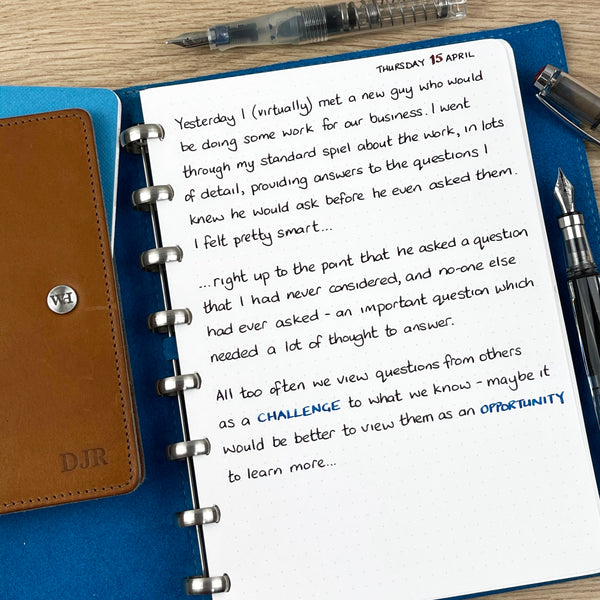 THURSDAY 15 APRIL
Yesterday I (virtually) met a new guy who would
be doing some work for our business. I went
through my standard spiel about the work, in lots
of detail, providing answers to the questions I
knew he would ask before he even asked them.
I felt pretty smart...
...right up to the point that he asked a question
that I had never considered, and no-one else
had ever asked - an important question which
needed a lot of thought to answer.
All too often we view questions from others
as a CHALLENGE to what we know - maybe it
would be better to view them as an OPPORTUNITY
to learn more...
DJR